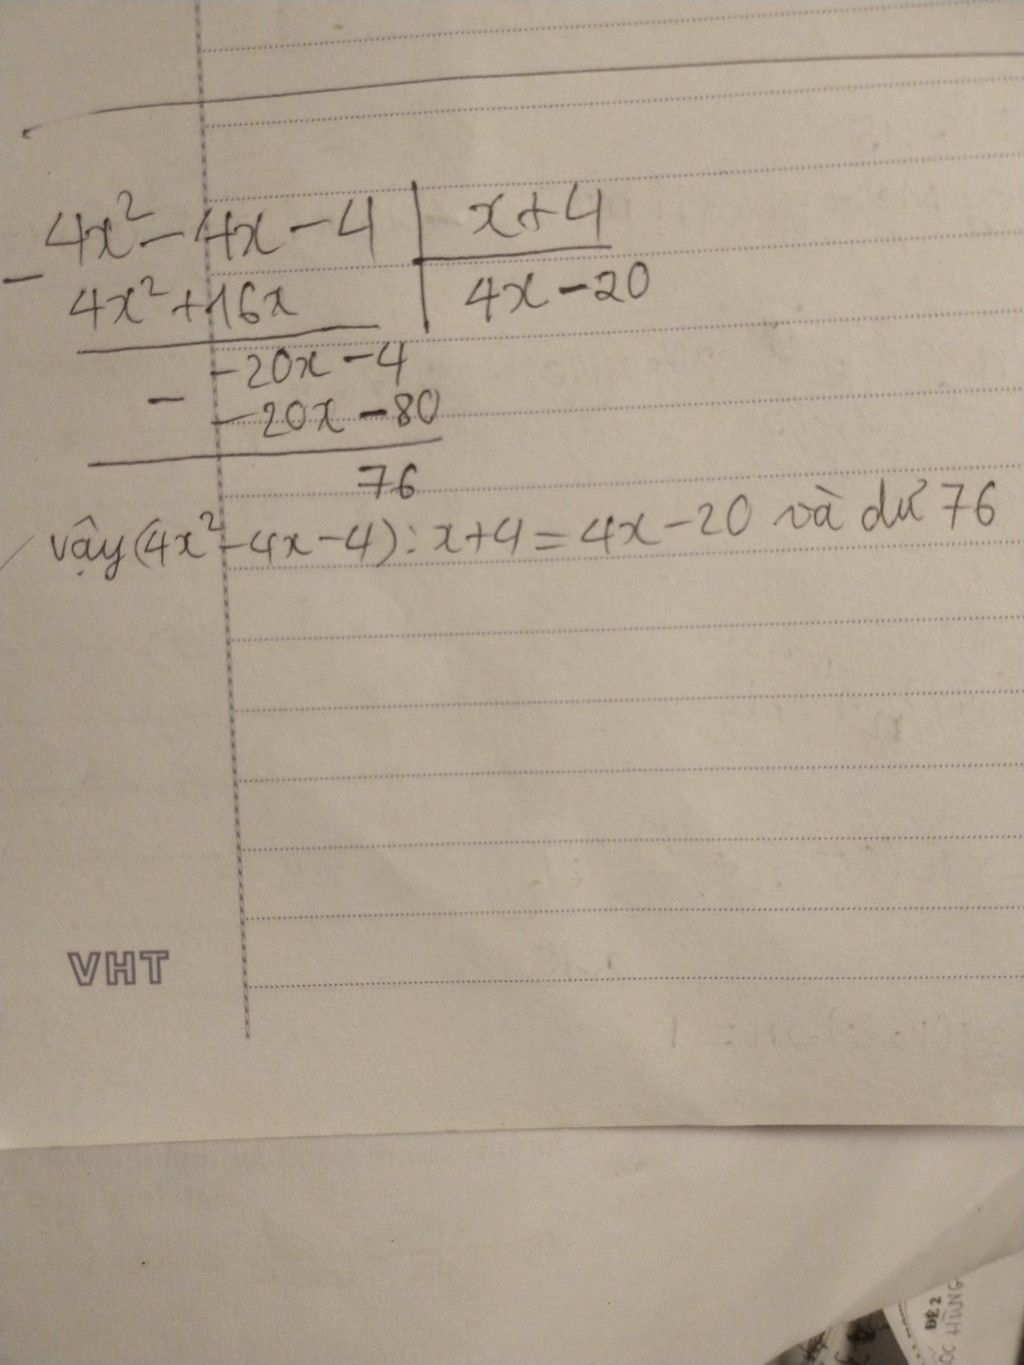 4x² - 4x - 4 | x + 4
- 4x² + 16x | 4x - 20
-20x - 4
- -20x - 80
76
vậy (4x² - 4x - 4) : x + 4 = 4x - 20 và dư 76
VHT
ĐỀ 2
HÙNG